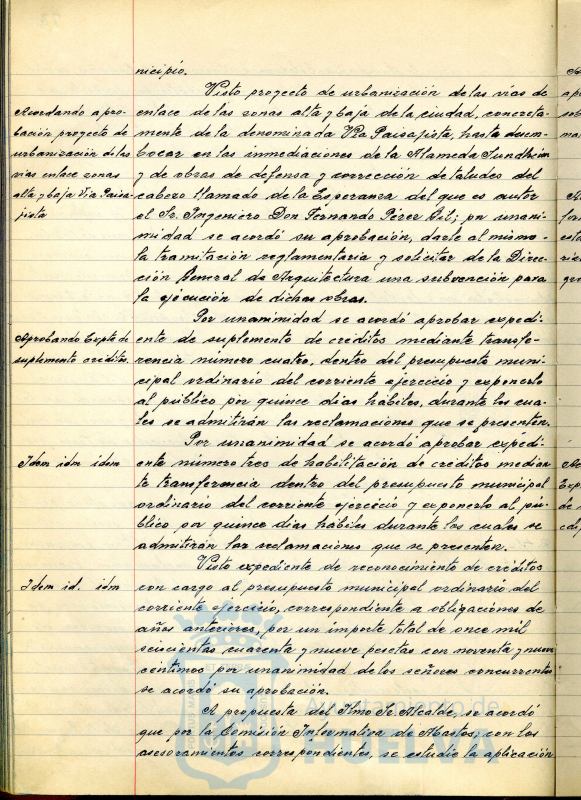 nicipio.
Visto proyecto de urbanización de las vías de
enlace de las zonas alta y baja de la ciudad, concreta-
mente de la denominada Vía Paisajista, hasta desem-
bocar en las inmediaciones de la Alameda Sundheim
y de obras de defensa y corrección de taludes del
cabezo llamado de la Esperanza del que es autor
el Sr. Ingeniero Don Fernando Pérez Gil; por unani-
midad se acordó su aprobación, darle al mismo
la tramitación reglamentaria y solicitar de la Direc-
ción General de Arquitectura una subvención para
la ejecución de dichas obras.
Acordando apro-
bación proyecto de
urbanización de las
vías enlace zonas
alta y baja Vía Paisa-
jista
Por unanimidad se acordó aprobar expedi-
ente de suplemento de créditos mediante transfe-
rencia número cuatro, dentro del presupuesto muni-
cipal ordinario del corriente ejercicio y exponerlo
al público por quince días hábiles, durante los cua-
les se admitirán las reclamaciones que se presenten.
Aprobando Expte de
suplemento créditos.
Por unanimidad se acordó aprobar expedi-
ente número tres de habilitación de créditos median
te transferencia dentro del presupuesto municipal
ordinario del corriente ejercicio y exponerlo al pú-
blico por quince días hábiles durante los cuales se
admitirán las reclamaciones que se presenten.
Idem idm idem
Visto expediente de reconocimiento de créditos
con cargo al presupuesto municipal ordinario del
corriente ejercicio, correspondiente a obligaciones de
años anteriores, por un importe total de once mil
seiscientas cuarenta y nueve pesetas con noventa y nueve
céntimos por unanimidad de los señores concurrentes
se acordó su aprobación.
Idem id. idm
A propuesta del Ilmo Sr Alcalde, se acordó
que por la Comisión Informativa de Abastos, con los
asesoramientos correspondientes, se estudie la aplicación
Ayuntamiento de
HUELVA